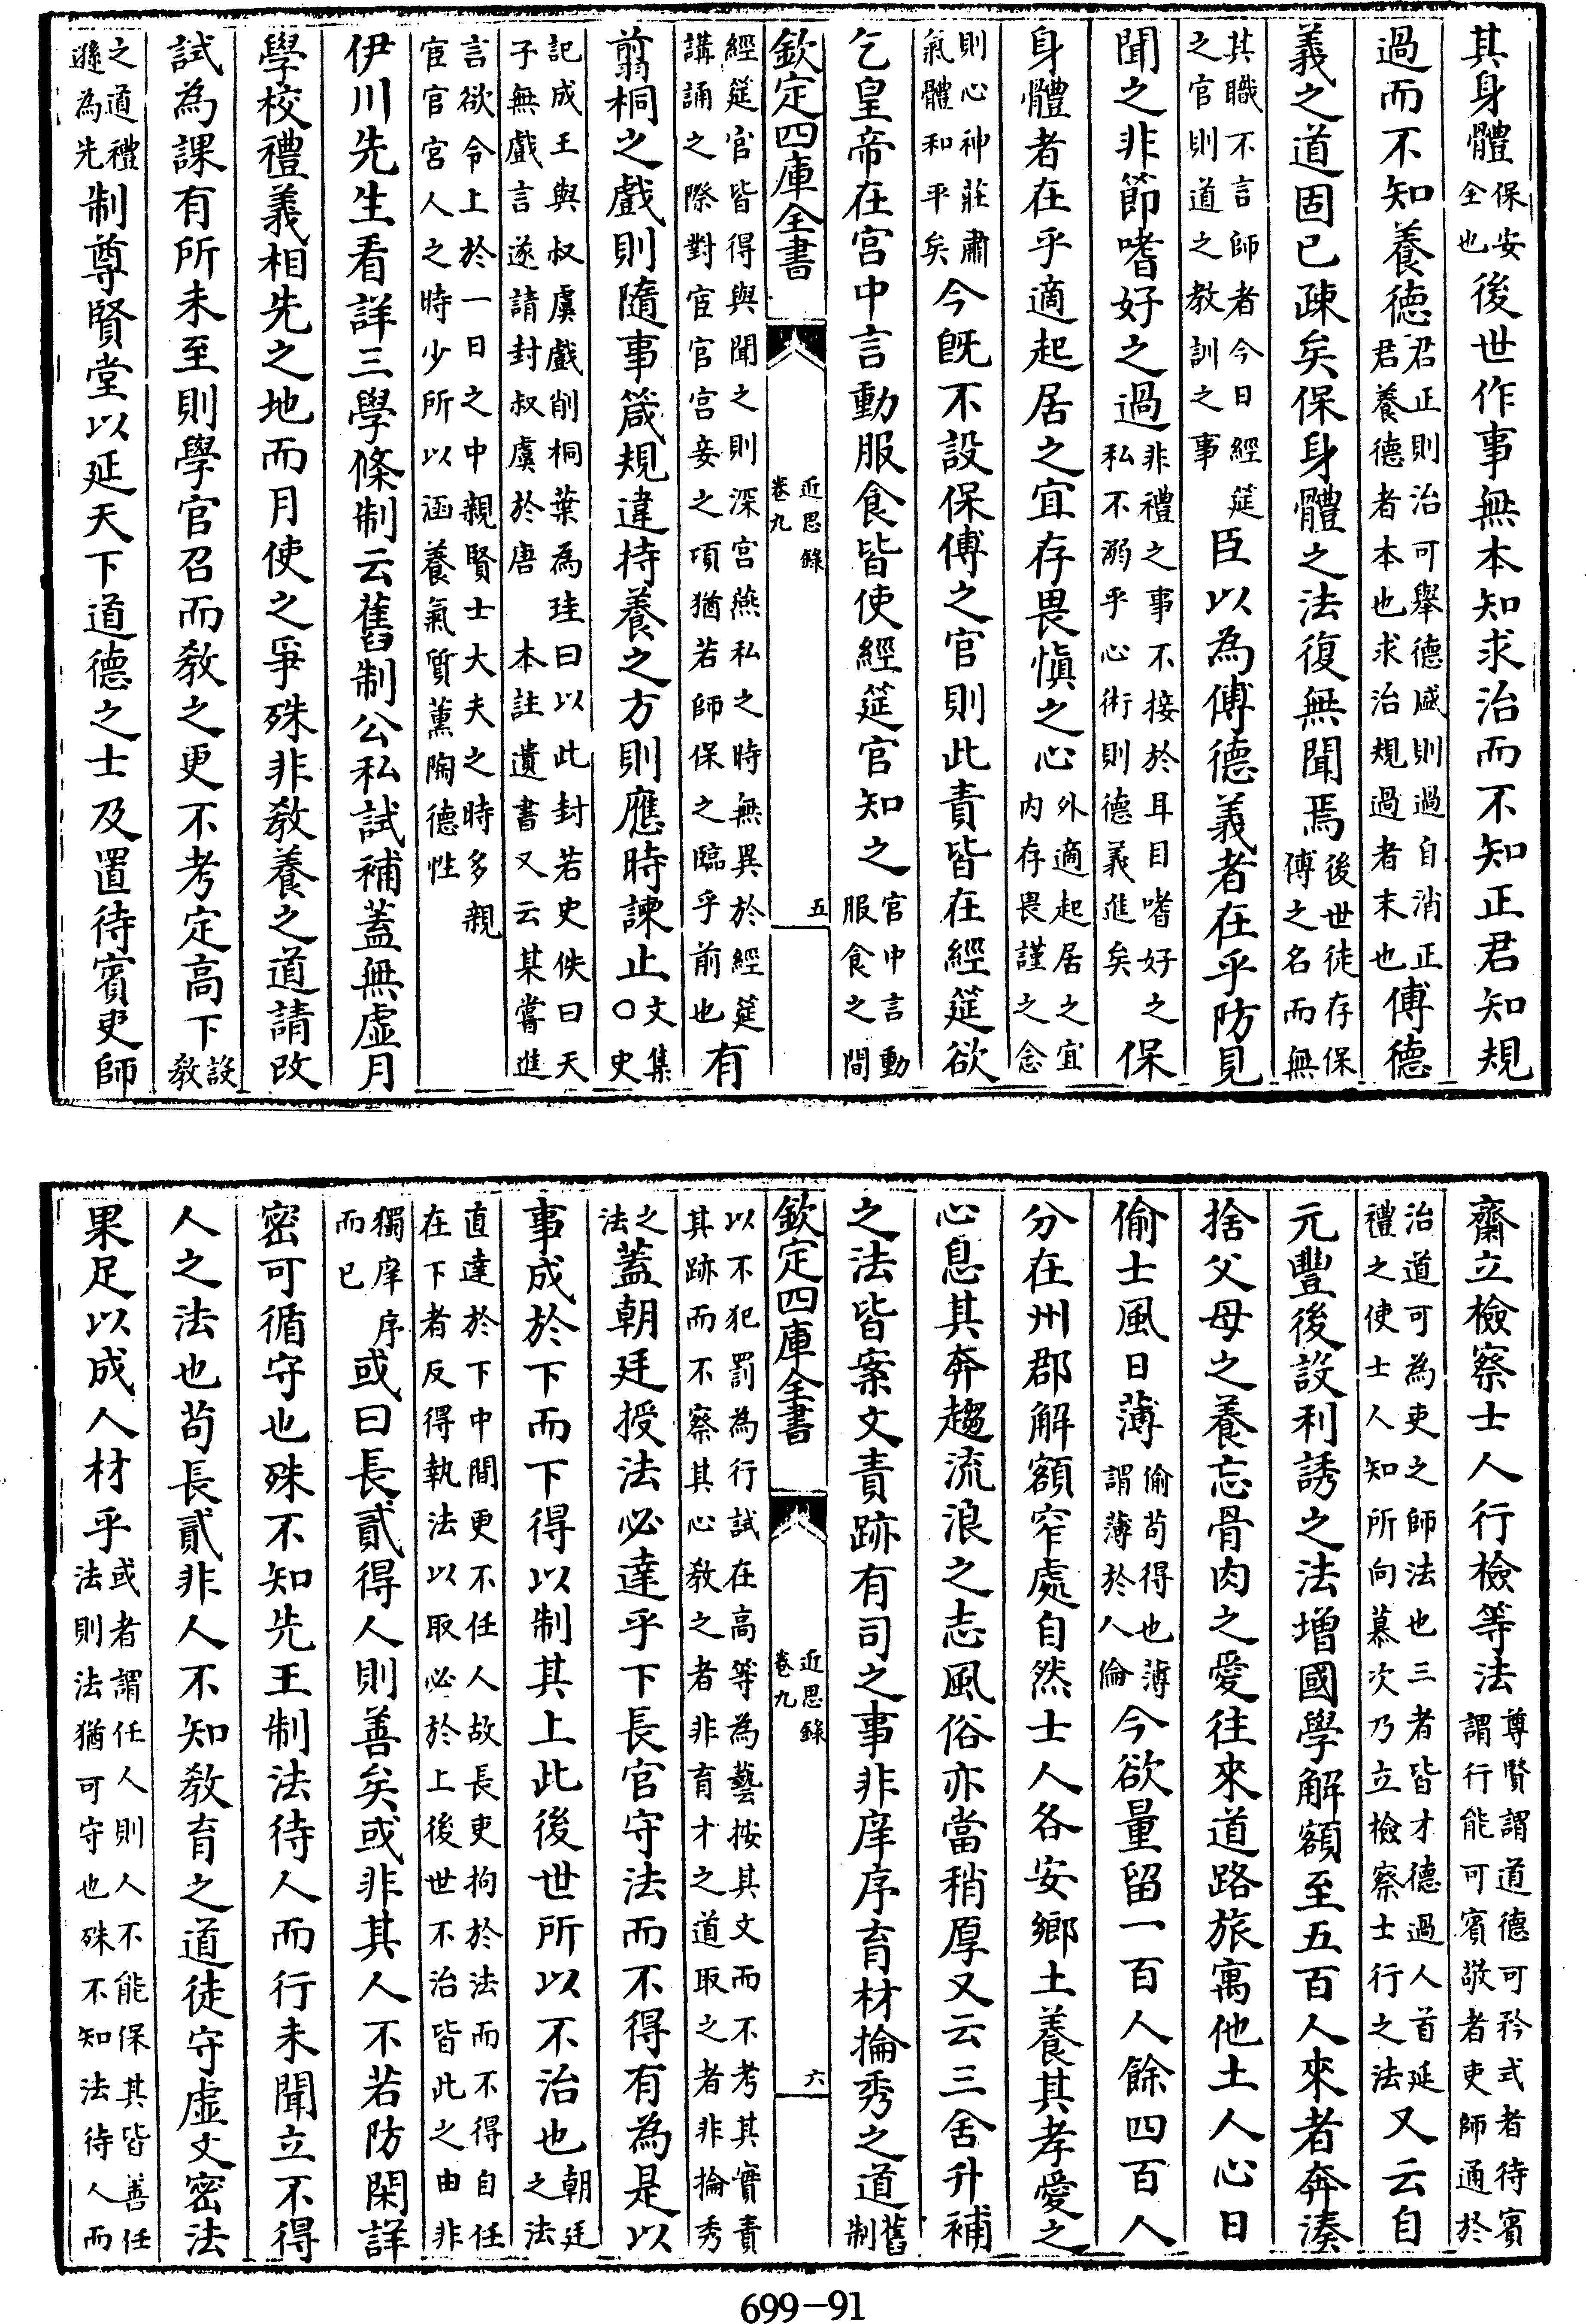 其身體保安全也後世作事無本知求治而不知正君知規
過而不知養德君正則治可舉德盛則過自消正君養德者本也求治規過者末也傅德
義之道固已疎矣保身體之法復無聞焉後世徒存保傅之名而無
其職不言師者今日經筵之官則道之教訓之事臣以為傅德義者在乎防見
聞之非節嗜好之過非禮之事不接於耳目嗜好之私不溺乎心術則德義進矣保
身體者在乎適起居之宜存畏慎之心外適起居之宜內存畏謹之念
則心神莊肅氣體和平矣今既不設保傅之官則此責皆在經筵欲
乞皇帝在宮中言動服食皆使經筵官知之宮中言動服食之間
欽定四庫全書 近思錄卷九 五
經筵官皆得與聞之則深宮燕私之時無異於經筵講誦之際對宦官宮妾之項猶若師保之臨乎前也有
翦桐之戲則隨事箴規違持養之方則應時諫止文集○史
記成王與叔虞戲削桐葉為珪曰以此封若史佚曰天子無戲言遂請封叔虞於唐 本註遺書又云某嘗進
言欲令上於一日之中親賢士大夫之時多親宦官宮人之時少所以涵養氣質薰陶德性
伊川先生看詳三學條制云舊制公私試補蓋無虛月
學校禮義相先之地而月使之爭殊非敎養之道請改
試為課有所未至則學官召而敎之更不考定高下設敎
之道禮遜為先制尊賢堂以延天下道德之士及置待賓吏師
齋立檢察士人行檢等法尊賢謂道德可矜式者待賓謂行能可賓敬者吏師通於
治道可為吏之師法也三者皆才德過人首延禮之使士人知所向慕次乃立檢察士行之法又云自
元豐後設利誘之法增國學解額至五百人來者奔湊
捨父母之養忘骨肉之愛往來道路旅寓他土人心日
偷士風日薄偷苟得也薄謂薄於人倫今欲量留一百人餘四百人
分在州郡解額窄處自然士人各安鄉土養其孝愛之
心息其奔趨流浪之志風俗亦當稍厚又云三舍升補
之法皆案文責跡有司之事非庠序育材掄秀之道舊制
欽定四庫全書 近思錄卷九 六
以不犯罰為行試在高等為藝按其文而不考其實責其跡而不察其心敎之者非育才之道取之者非掄秀
之法蓋朝廷授法必達乎下長官守法而不得有為是以
事成於下而下得以制其上此後世所以不治也朝廷之法
直達於下中間更不任人故長吏拘於法而不得自任在下者反得執法以取必於上後世不治皆此之由非
獨庠序而已或曰長貳得人則善矣或非其人不若防閑詳
密可循守也殊不知先王制法待人而行未聞立不得
人之法也苟長貳非人不知敎育之道徒守虛文密法
果足以成人材乎或者謂任人則人不能保其皆善任法則法猶可守也殊不知法待人而
699-91